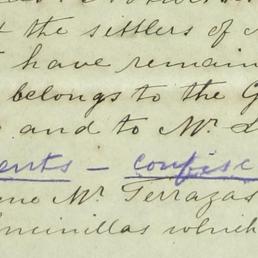 t the settlers of
have remain
belongs to the G
and to Mr
ents - confisc
me Mr Terrazas
ncinillas which